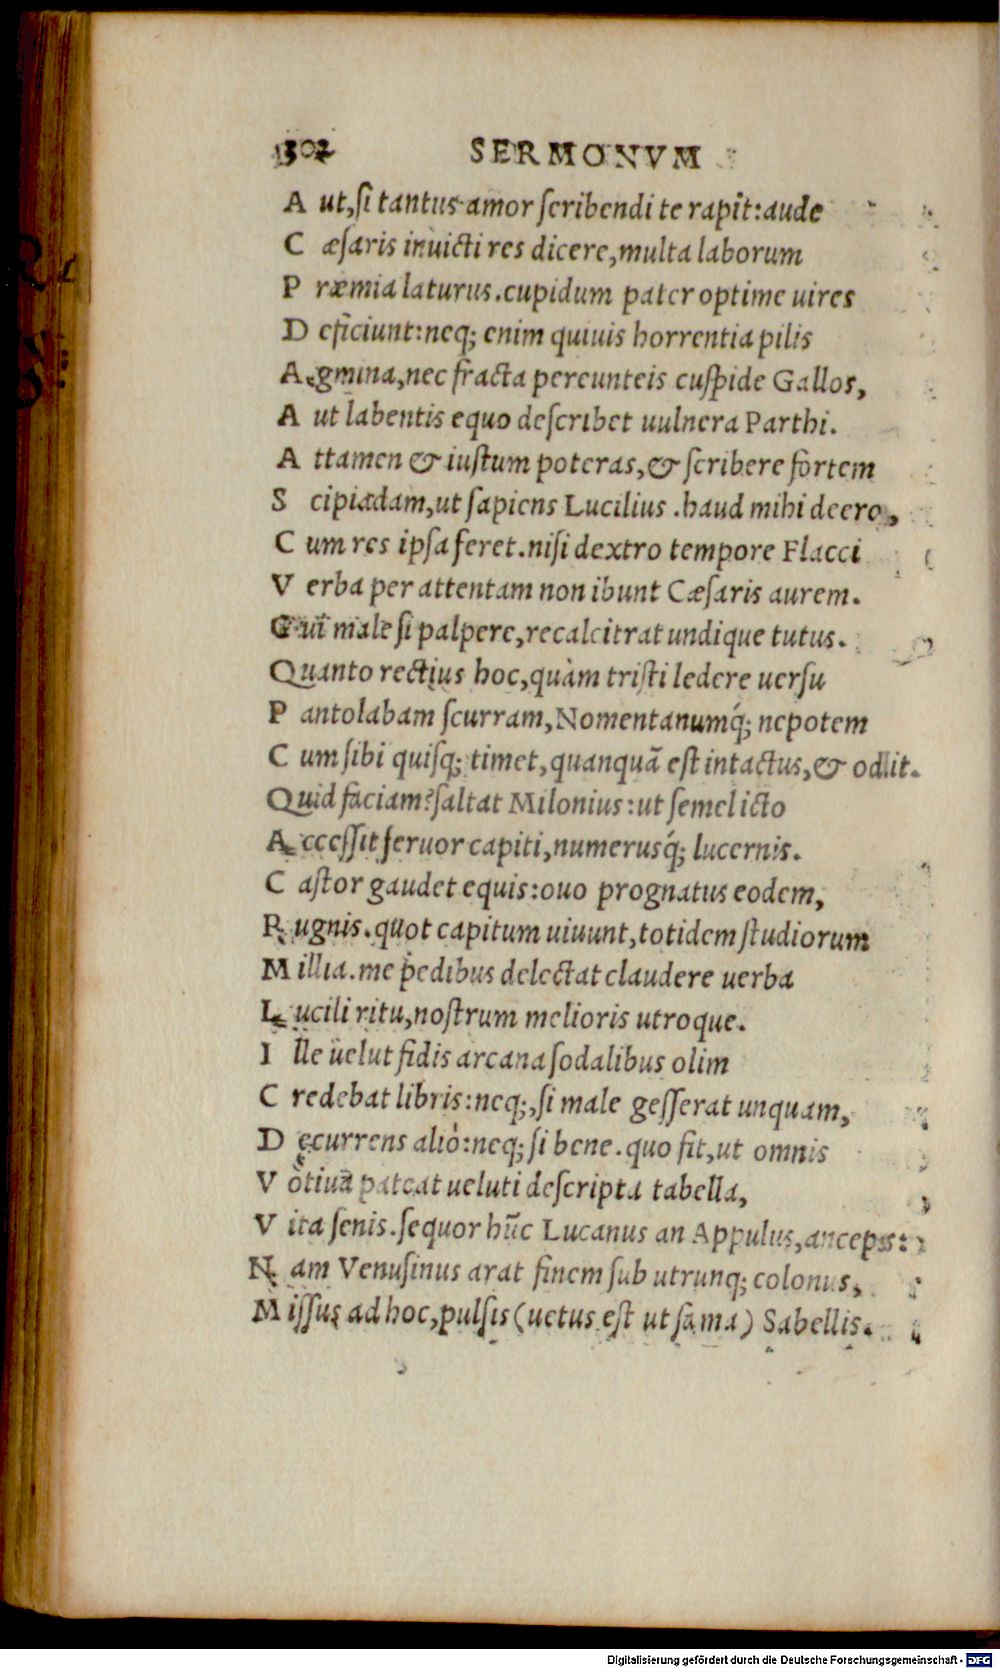 302 SERMONVM
A ut, si tantus amor scribendi te rapit: aude
C æsaris inuicti res dicere, multa laborum
P ræmia laturus. cupidum pater optime uires
D eficiunt: neq; enim quiuis horrentia pilis
A gmina, nec fracta pereunteis cuspide Gallos,
A ut labentis equo describet uulnera Parthi.
A ttamen & iustum poteras, & scribere fortem
S cipiadam, ut sapiens Lucilius. haud mihi deero,
C um res ipsa feret. nisi dextro tempore Flacci
V erba per attentam non ibunt Cæsaris aurem.
C ui male si palpere, recalcitrat undique tutus.
Quanto rectius hoc, quàm tristi ledere uersu
P antolabam scurram, Nomentanumq́; nepotem
C um sibi quisq; timet, quanquã est intactus, & odit.
Quid faciam? saltat Milonius: ut semel icto
A ccessit feruor capiti, numerusq́; lucernis.
C astor gaudet equis: ouo prognatus eodem,
P ugnis. quot capitum uiuunt, totidem studiorum
M illia. me pedibus delectat claudere uerba
L ucili ritu, nostrum melioris utroque.
I lle uelut fidis arcana sodalibus olim
C redebat libris: neq;, si male gesserat unquam,
D ecurrens aliò: neq; si bene. quo fit, ut omnis
V otiua pateat ueluti descripta tabella,
V ita senis. sequor hũc Lucanus an Appulus, anceps:
N am Venusinus arat finem sub utrunq; colonus,
M issus ad hoc, pulsis (uetus est ut fama) Sabellis.
Digitalisierung gefördert durch die Deutsche Forschungsgemeinschaft - DFG